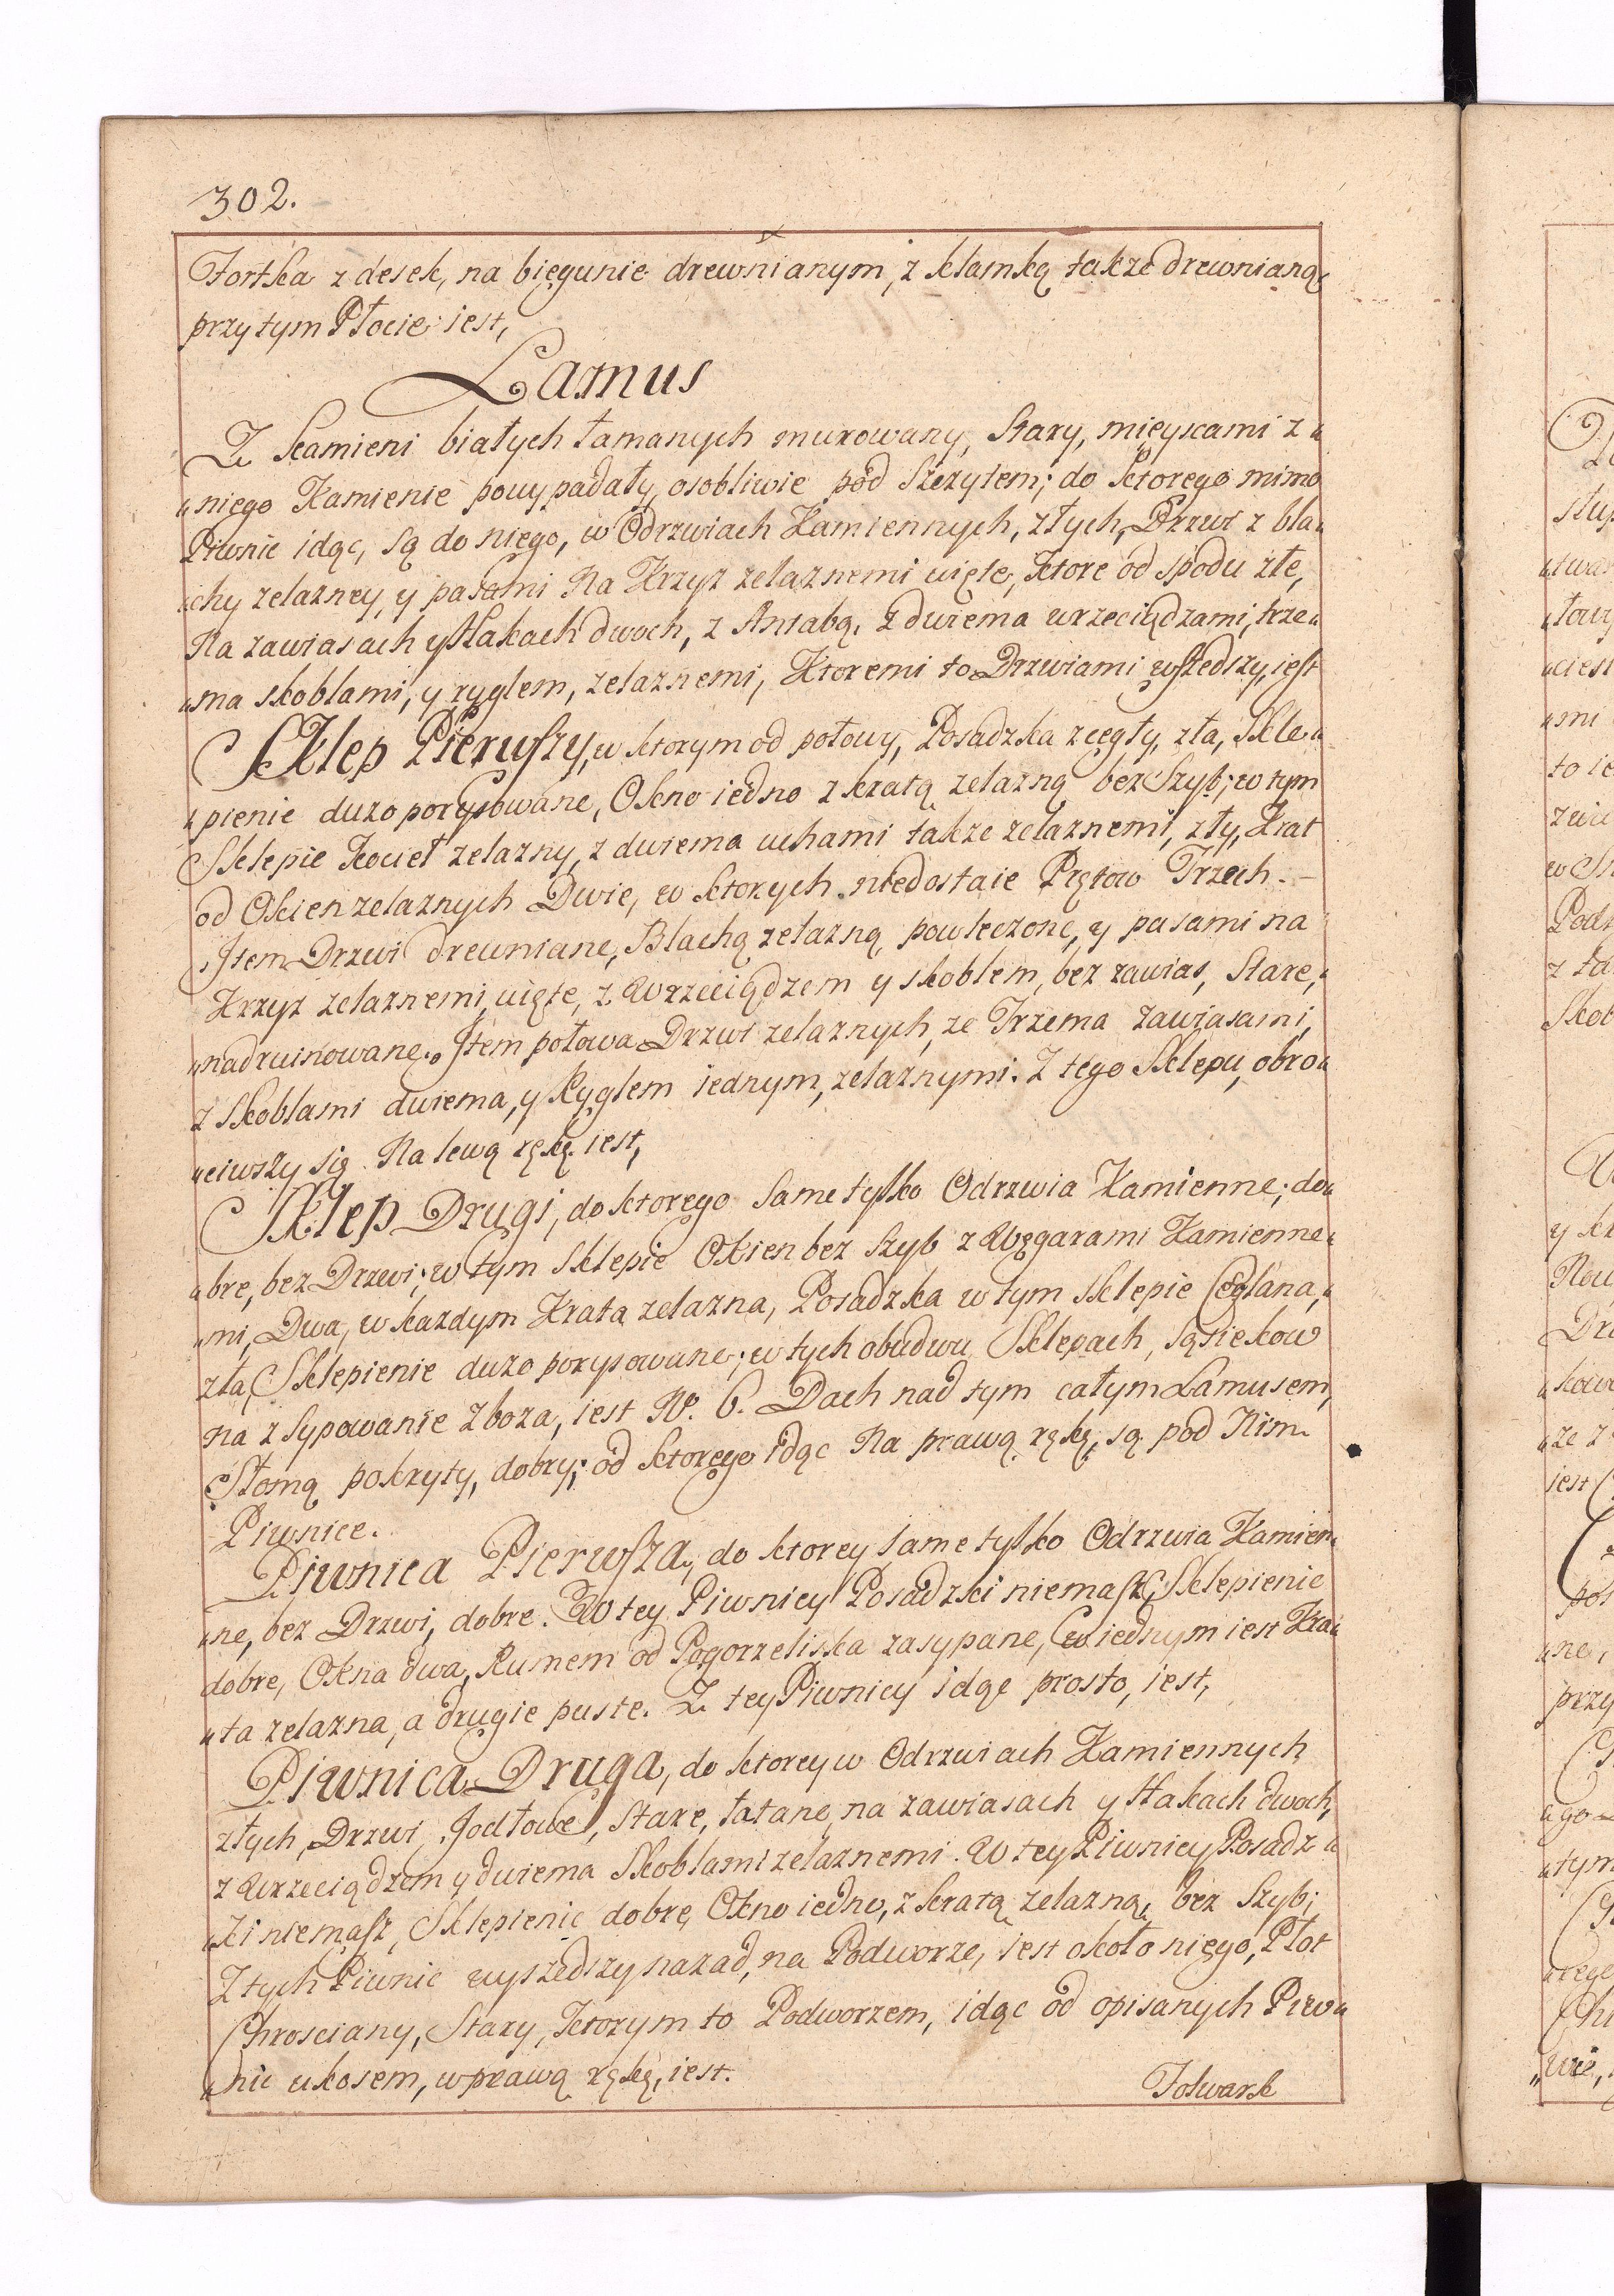 302.
Fortka z desek, na biegunie drewnianym, z klamką także drewnianą,
przy tym Płocie iest,
Lamus
Z kamieni białych łamanych murowany, Stary, mieyscami z„
„niego Kamienie powypadały, osobliwie pod Szczytem; do ktorego mimo
Piwnic idąc, są do niego, w Odrzwiach Kamiennych, złych, Drzwi z bla„
„chy zelazney, y pasami Na Krzyz zelaznemi uięte, ktore od spodu złe,
Na zawiasach y Hakach dwoch, z Antabą, z dwiema wrzeciądzami, trze„
„ma skoblami, y ryglem, zelaznemi, Ktoremi to Drzwiami wszedszy, iest
Sklep Pierwszy, w ktorym od połowy, Posadzka z cegły, zła, Skle„
„pienie duzo porysowane, Okno iedno z kratą zelazną bez Szyb; w tym
Sklepie Kocieł zelazny, z dwiema uchami także zelaznemi, zły, Krat
od Okien zelaznych Dwie, w ktorych niedostaie Prętow Trzech.–
Item Drzwi drewniane, Blachą zelazną powleczone, y pasami na
Krzyz zelaznemi uięte, z Wrzeciądzem y skoblem, bez zawias, Stare,„
„nadruinowane. Item połowa Drzwi zelaznych, ze Trzema zawiasami,
z Skoblami dwiema, y Ryglem iednym, zelaznymi. Z tego Sklepu, obro„
„ciwszy się Na lewą rękę iest,
Sklep Drugi, do ktorego same tylko Odrzwia Kamienne, do„
„bre, bez Drzwi; w tym Sklepie Okien bez Szyb z Węgarami Kamienne„
„mi, Dwa, w kazdym Krata zelazna, Posadzka w tym Sklepie Ceglana,„
zła, Sklepienie duzo porysowane; w tych obudwu Sklepach, sąsiekow
na zsypowanie Zboza, iest No. 6. Dach nad tym całym Lamusem,
Słomą pokryty, dobry; od ktorego idąc Na prawą rękę, są pod Nim
Piwnice.
Piwnica Pierwsza, do ktorey same tylko Odrzwia Kamien„
„ne, bez Drzwi, dobre. W tey Piwnicy Posadzki niemasz, Sklepienie
dobre, Okna dwa, Rumem od Pogorzeliska zasypane, w iednym iest Kra„
„ta zelazna, a drugie puste. Z tey Piwnicy idąc prosto, iest,
Piwnica Druga, do ktorey w Odrzwiach Kamiennych
złych, Drzwi Jodłowe, Stare, łatane, na zawiasach y Hakach dwoch,
z Wrzeciądzem y dwiema Skoblami zelaznemi. W tey Piwnicy Posadz„
„ki niemasz, Sklepienie dobre, Okno iedno, z kratą zelazną, bez Szyb;
Z tych Piwnic wyszedszy nazad, na Podworze, iest około niego, Płot
Chrosciany, Stary, ktorym to Podworzem, idąc od opisanych Piw„
„nic ukosem, w prawą rękę, iest.
Folwark